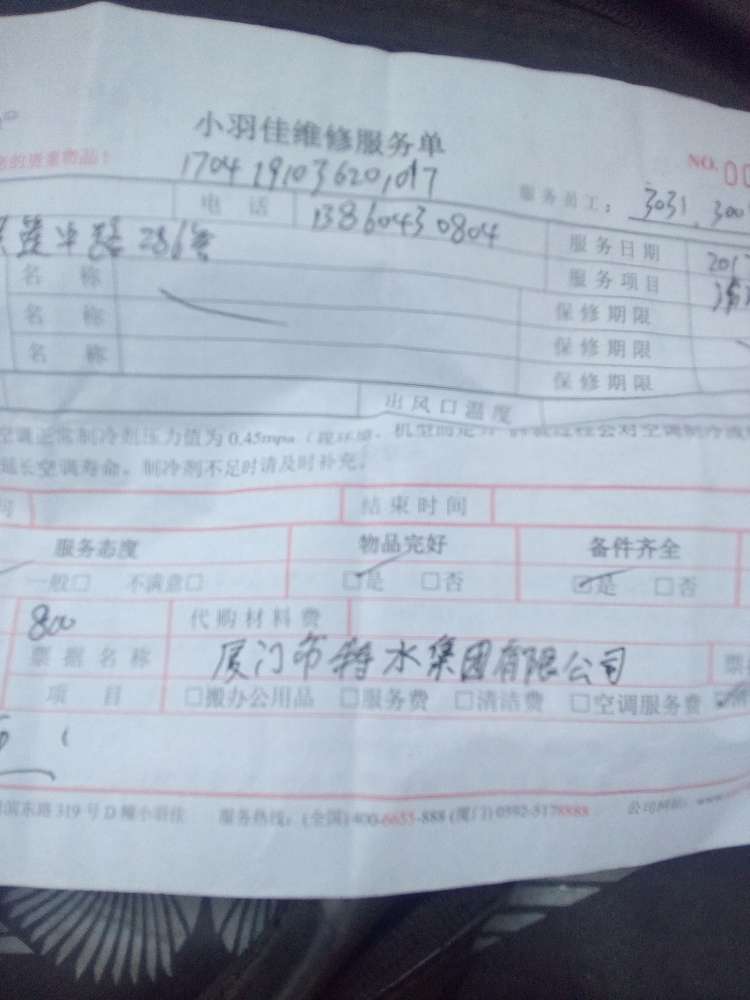 小羽佳维修服务单
的贵重物品!
NO. 00
17041910362010017
服务员工: 3031.300
电话 13860430804
服务日期 201
中路 286号
服务项目
名称
保修期限
名称
保修期限
名称
保修期限
出风口温度
空调正常制冷剂压力值为0.45mpa
延长空调寿命。制冷剂不足时请及时补充。
结束时间
服务态度 物品完好 备件齐全
一般□ 不满意□ □是 □否 □是 □否
800 代购材料费
票据名称 厦门市特水集团有限公司 票
项目 □搬办公用品 □服务费 □清洁费 □空调服务费
滨东路319号D幢小羽佳 服务热线:(全国)400-6655-888 (厦门)0592-5178888 公司网站: